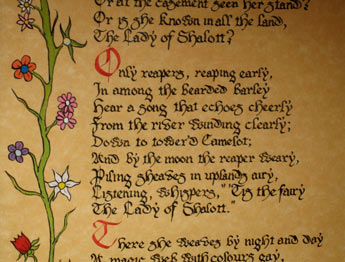 Or at the casement seen her stand?
Or is she known in all the land,
The Lady of Shalott?
Only reapers, reaping early,
In among the bearded barley
Hear a song that echoes cheerly
From the river winding clearly;
Down to tower'd Camelot;
And by the moon the reaper weary,
Piling sheaves in uplands airy,
Listening, whispers, "'Tis the fairy
The Lady of Shalott."
There she weaves by night and day
A magic web with colours gay,